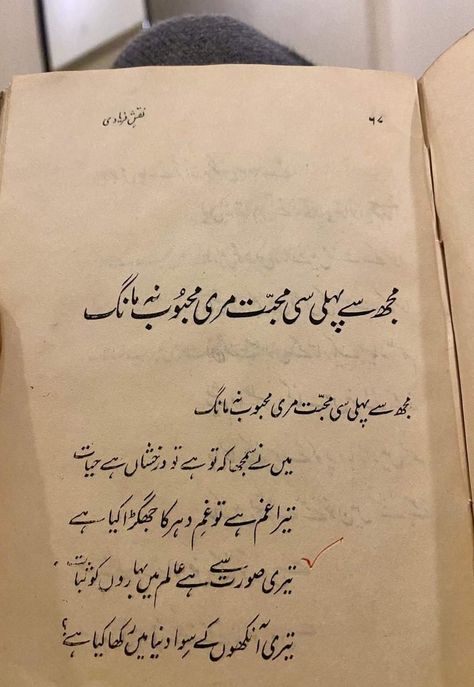 ۶۷
نقشِ فریادی
مجھ سے پہلی سی محبّت مری محبُوب نہ مانگ
مجھ سے پہلی سی محبّت مری محبوب نہ مانگ
میں نے سمجھا کہ تو ہے تو درخشاں ہے حیات
تیرا غم ہے تو غمِ دہر کا جھگڑا کیا ہے
تیری صورت سے ہے عالم میں بہاروں کو ثبات
تیری آنکھوں کے سِوا دنیا میں رکھا کیا ہے؟